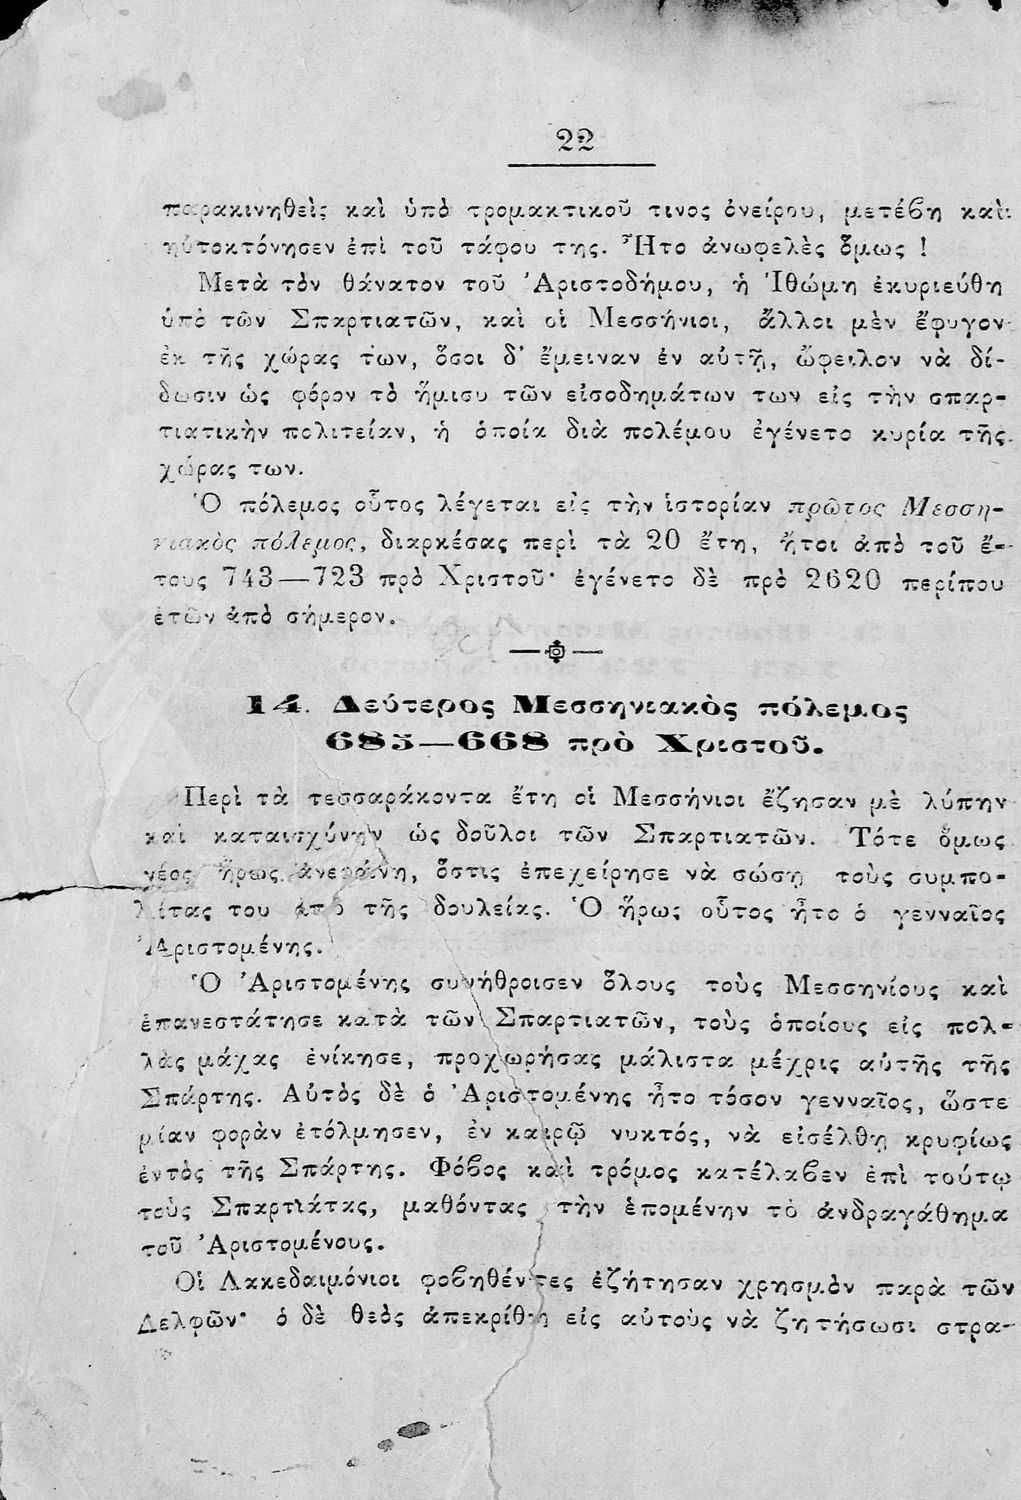 22
παρακινηθεὶς καὶ ὑπὸ τρομακτικοῦ τινος ὀνείρου, μετέβη καὶ
ηὐτοκτόνησεν ἐπὶ τοῦ τάφου της. Ἦτο ἀνωφελὲς ὅμως !
Μετὰ τὸν θάνατον τοῦ Ἀριστοδήμου, ἡ Ἰθώμη ἐκυριεύθη
ὑπὸ τῶν Σπαρτιατῶν, καὶ οἱ Μεσσήνιοι, ἄλλοι μὲν ἔφυγον
ἐκ τῆς χώρας των, ὅσοι δ' ἔμειναν ἐν αὐτῇ, ὤφειλον νὰ δί-
δωσιν ὡς φόρον τὸ ἥμισυ τῶν εἰσοδημάτων των εἰς τὴν σπαρ-
τιατικὴν πολιτείαν, ἡ ὁποία διὰ πολέμου ἐγένετο κυρία τῆς
χώρας των.
Ὁ πόλεμος οὗτος λέγεται εἰς τὴν ἱστορίαν πρῶτος Μεσση-
νιακὸς πόλεμος, διαρκέσας περὶ τὰ 20 ἔτη, ἤτοι ἀπὸ τοῦ ἔ-
τους 743—723 πρὸ Χριστοῦ· ἐγένετο δὲ πρὸ 2620 περίπου
ἐτῶν ἀπὸ σήμερον.
14. Δεύτερος Μεσσηνιακὸς πόλεμος
685—668 πρὸ Χριστοῦ.
Περὶ τὰ τεσσαράκοντα ἔτη οἱ Μεσσήνιοι ἔζησαν μὲ λύπην
καὶ καταισχύνην ὡς δοῦλοι τῶν Σπαρτιατῶν. Τότε ὅμως
νέος ἥρως ἀνεφάνη, ὅστις ἐπεχείρησε νὰ σώσῃ τοὺς συμπο-
λίτας του ἀπὸ τῆς δουλείας. Ὁ ἥρως οὗτος ἦτο ὁ γενναῖος
Ἀριστομένης.
Ὁ Ἀριστομένης συνήθροισεν ὅλους τοὺς Μεσσηνίους καὶ
ἐπανεστάτησε κατὰ τῶν Σπαρτιατῶν, τοὺς ὁποίους εἰς πολ-
λὰς μάχας ἐνίκησε, προχωρήσας μάλιστα μέχρις αὐτῆς τῆς
Σπάρτης. Αὐτὸς δὲ ὁ Ἀριστομένης ἦτο τόσον γενναῖος, ὥστε
μίαν φορὰν ἐτόλμησεν, ἐν καιρῷ νυκτός, νὰ εἰσέλθῃ κρυφίως
ἐντὸς τῆς Σπάρτης. Φόβος καὶ τρόμος κατέλαβεν ἐπὶ τούτῳ
τοὺς Σπαρτιάτας, μαθόντας τὴν ἑπομένην τὸ ἀνδραγάθημα
τοῦ Ἀριστομένους.
Οἱ Λακεδαιμόνιοι φοβηθέντες ἐζήτησαν χρησμὸν παρὰ τῶν
Δελφῶν· ὁ δὲ θεὸς ἀπεκρίθη εἰς αὐτοὺς νὰ ζητήσωσι στρα-